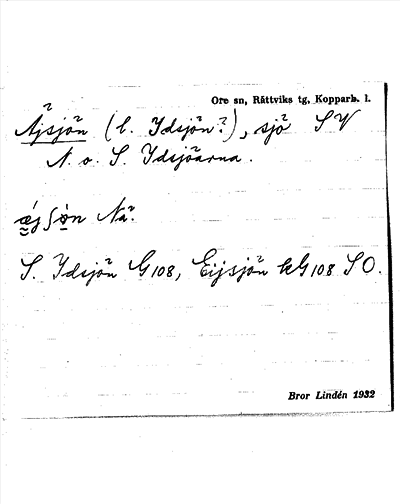 Ore sn, Rättviks tg, Kopparb. l.
Äjsjön (l. Ydsjön?), sjö SV
N. o. S. Ydsjöarna.
ǽjʃòn Nä.
S. Ydsjön G108, Eijsjön kG108 SO.
Bror Lindén 1932